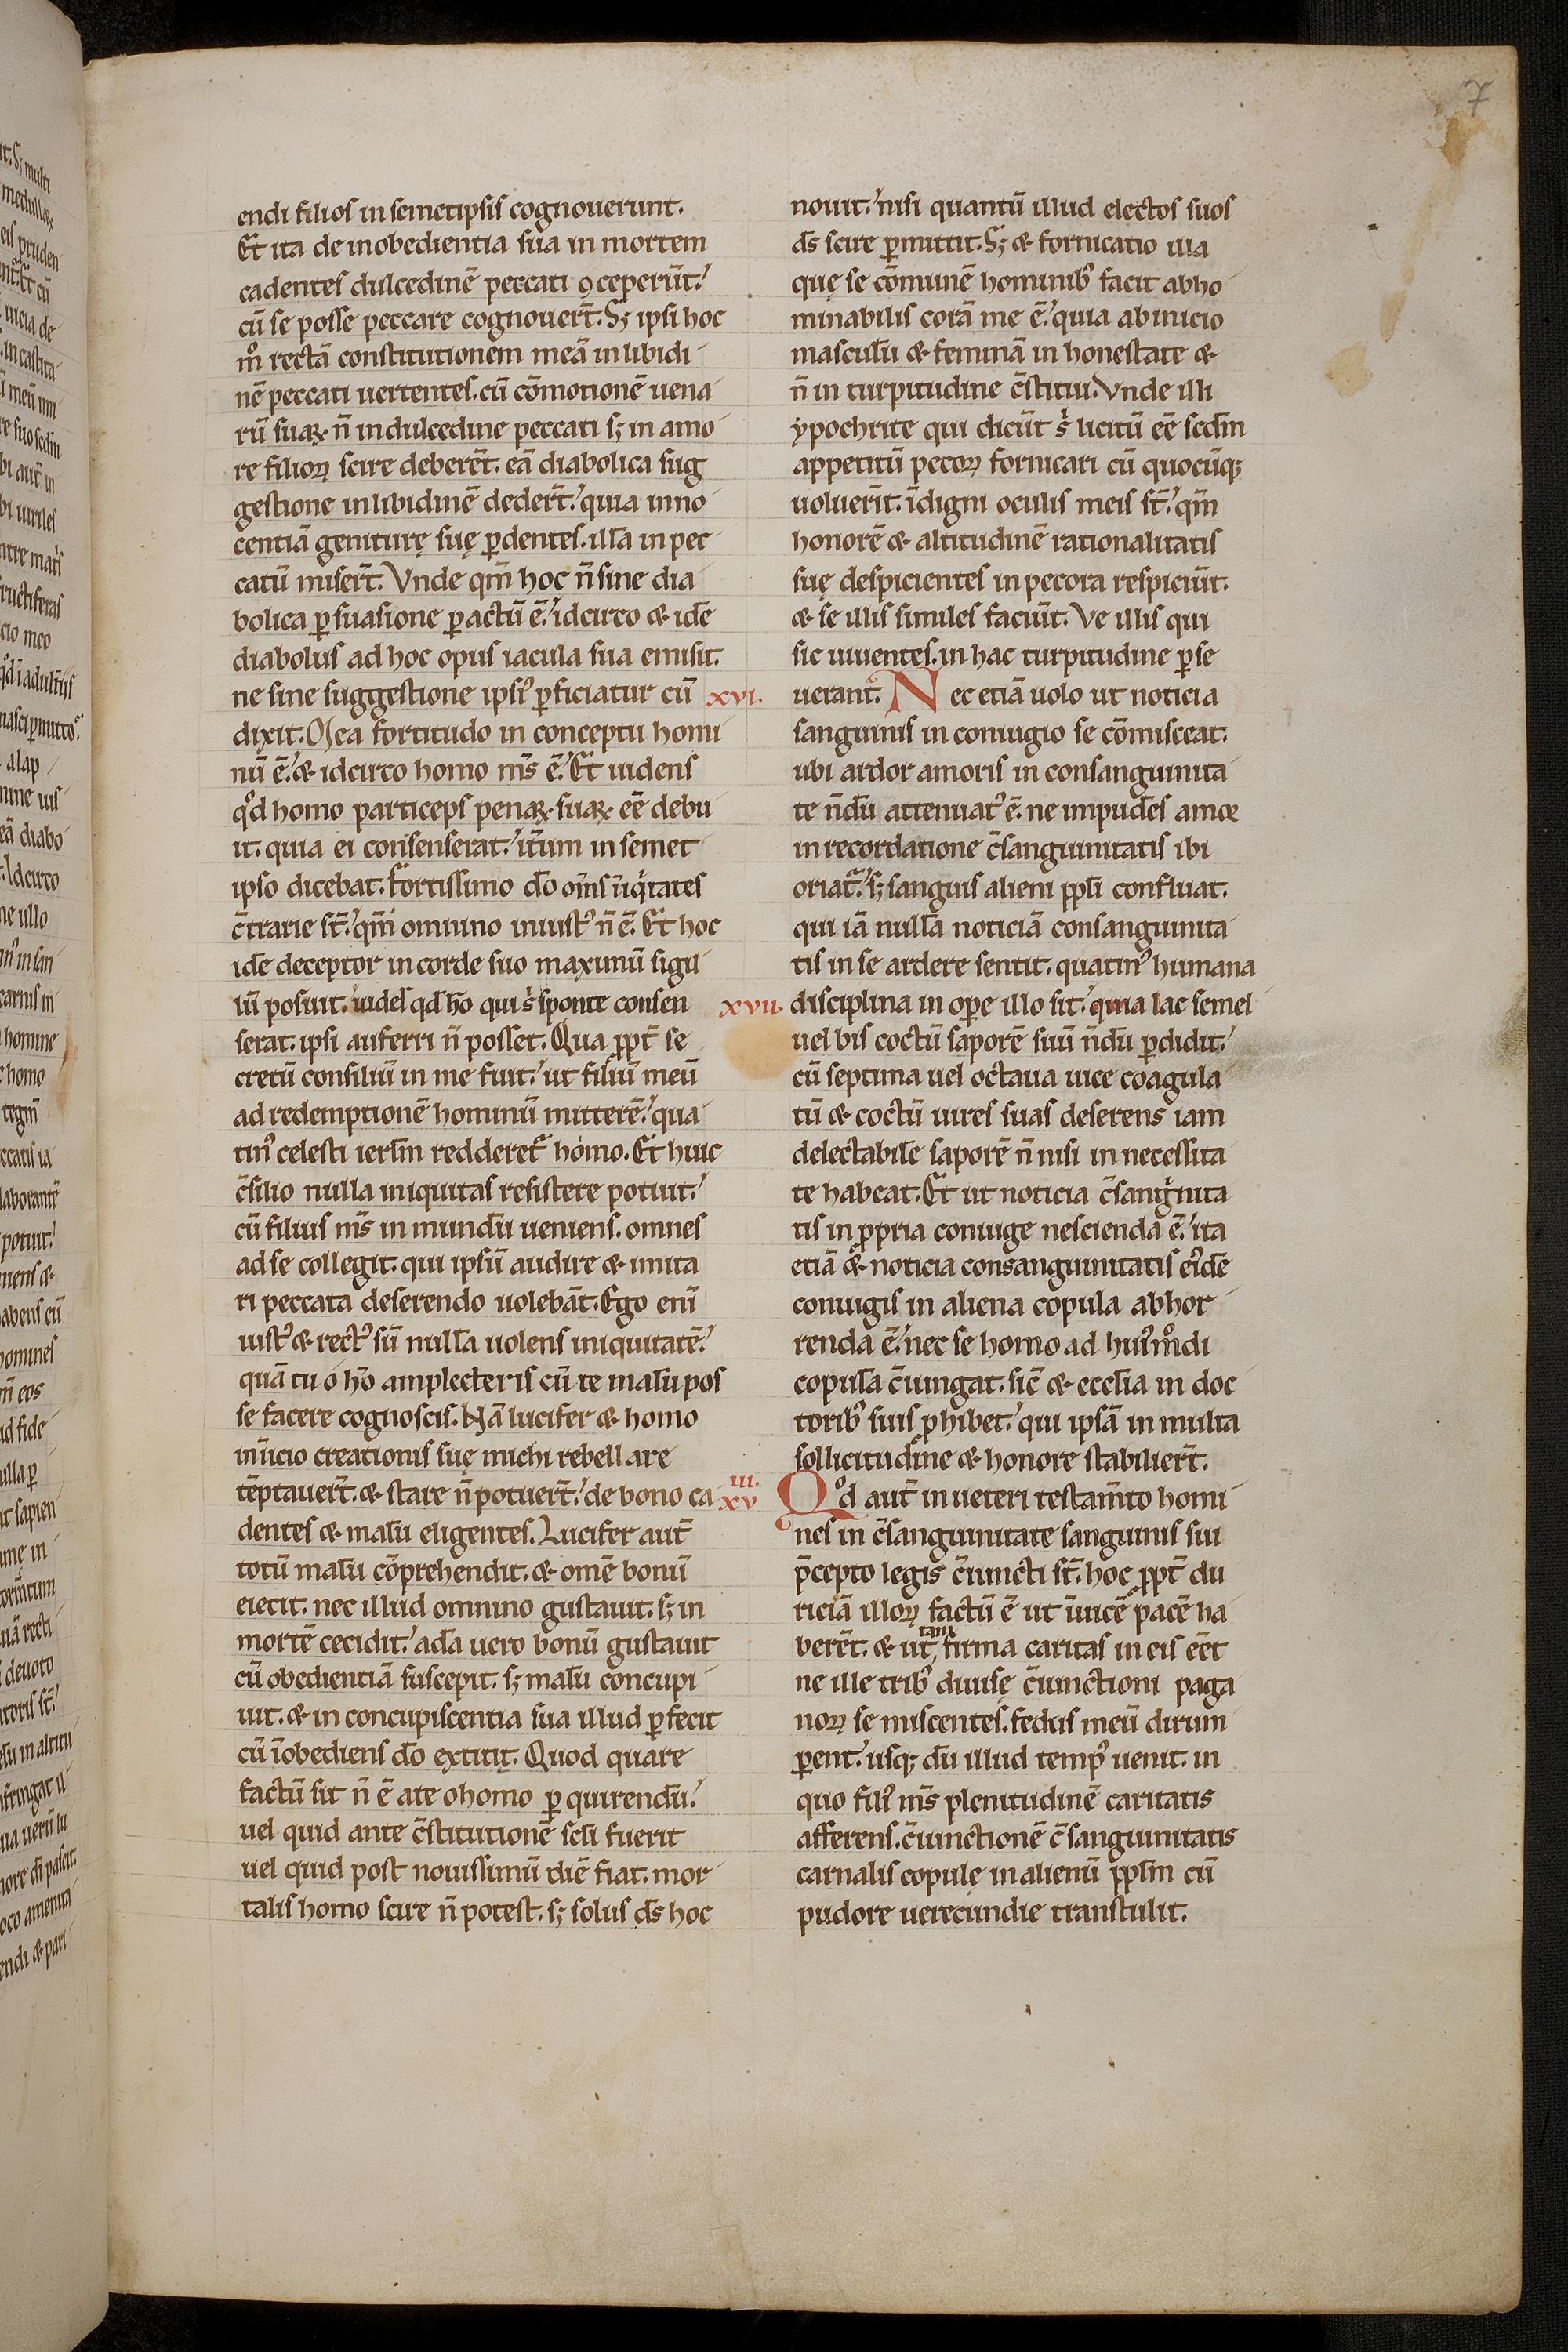 7
endi filios in semetipsis cognouerunt.
Et ita de inobedientia sua in mortem
cadentes dulcedinē peccati ꝯceperūt.'
cū se posse peccare cognouer̄t. Sꝫ ipsi hoc
mͦ rectā constitutionem meā in libidi
nē peccati uertentes. cū cōmotionē uena
rū suaꝝ n̄ in dulcedine peccati sꝫ in amo
re filioꝝ scire deberēt. eā diabolica sug
gestione in libidinē deder̄t.' quia inno
centiā geniturę suę ꝑdentes. illā in pec
catū miser̄t. Vnde qm̄ hoc n̄ sine dia
bolica ꝑsuasione ꝑactū ē.' idcirco & idē
diabolus ad hoc opus iacula sua emisit.
ne sine suggestione ipsiꝰ ꝑficiatur cū
dixit. Mea fortitudo in conceptu homi
nū ē.' & idcirco homo ms̄ ē.' Et uidens
qͦd homo particeps penaꝝ suaꝝ eē debu
it. quia ei consenserat.' it̄um in semet
ipso dicebat. Fortissimo dō om̄s īiqͥtates
c̄trarie st̄.' qm̄ omnino iniustꝰ n̄ ē. Et hoc
idē deceptor in corde suo maximū sigil
lū posuit. uidel̄ qd̄ hō qui sͥ sponte consen
serat. ipsi auferri n̄ posset. Qua ꝓpt̄ se
cretū consiliū in me fuit.' ut filiū meū
ad redemptionē hominū mitterē.' qua
tinꝰ celesti ierl̄m redderet᷑ homo. Et huic
c̄silio nulla iniquitas resistere potuit.'
cū filius ms̄ in mundū ueniens. omnes
ad se collegit. qui ipsū audire & imita
ri peccata deserendo uolebāt. Ego enī
iustꝰ & rectꝰ sū nullā uolens iniquitatē.'
quā tu o hō amplecteris cū te malū pos
se facere cognoscis. Nā lucifer & homo
in īicio creationis suę michi rebellare
tēptauer̄t. & stare n̄ potuer̄t.' de bono ca
dentes & malū eligentes. Lucifer aut̄
totū malū cōprehendit. & omē bonū
eiecit. nec illud omnino gustauit. sꝫ in
mortē cecidit.' adā uero bonū gustauit
cū obedientiā suscepit. sꝫ malū concupi
uit. & in concupiscentia sua illud ꝑfecit
cū īobediens dō extitit. Quod quare
factū sit n̄ ē a te o homo ꝑquirendū.'
uel quid ante c̄stitutionē scl̄i fuerit
uel quid post nouissimū diē fiat. mor
talis homo scire n̄ potest. sꝫ solus ds̄ hoc
nouit.' nisi quantū illud electos suos
ds̄ scire ꝑmittit. Sꝫ & fornicatio illa
quę se cōmunē hominibꝰ facit abho
minabilis corā me ē.' quia ab inicio
masculū & feminā in honestate &
n̄ in turpitudine c̄stitui. Vnde illi
ypochrite qui dicūt sͥ licitū eē scdm̄
appetitū pecoꝝ fornicari cū quocūqꝫ
uoluerīt. īdigni oculis meis st̄.' qm̄
honorē & altitudinē rationalitatis
suę despicientes in pecora respiciūt.
& se illis similes faciūt. Ve illis qui
sic uiuentes. in hac turpitudine ꝑse
xvi. uerant. Nec etiā uolo ut noticia
sanguinis in coniugio se cōmisceat.
ubi ardor amoris in consanguinita
te n̄dū attenuatꝰ ē. ne impudēs amor
in recordatione c̄sanguinitatis ibi
oriat᷑.' sꝫ sanguis alieni ppl̄i confluat.
qui iā nullā noticiā consanguinita
tis in se ardere sentit. quatinꝰ humana
xvii. disciplina in oꝑe illo sit.' quia lac semel
uel bis coctū saporē suū n̄dū ꝑdidit.'
cū septima uel octaua uice coagula
tū & coctū uires suas deserens iam
delectabilē saporē n̄ nisi in necessita
te habeat. Et ut noticia c̄sangͥnita
tis in ꝓpria coniuge nescienda ē.' ita
etiā & noticia consanguinitatis eiꝰdē
coniugis in aliena copula abhor
renda ē.' nec se homo ad huiꝰmͦdi
copulā c̄iungat. sic̄ & eccl̄ia in doc
toribꝰ suis ꝓhibet.' qui ipsā in multa
sollicitudine & honore stabilier̄t.
xviii. Qͦd aut̄ in ueteri testam̄to homi
nes in c̄sanguinitate sanguinis sui
p̄cepto legis c̄iuncti st̄. hoc ꝓpt̄ du
riciā illoꝝ factū ē ut īuicē pacē ha
berēt. & ut tam firma caritas in eis eēt
ne ille tribꝰ diuisę c̄iunctioni paga
noꝝ se miscentes. fedus meū dirum
ꝑent.' usqꝫ dū illud tempꝰ uenit. in
quo filiꝰ ms̄ plenitudinē caritatis
afferens. c̄iunctionē c̄sanguinitatis
carnalis copulę in alienū ppl̄m cū
pudore uerecundie transtulit.